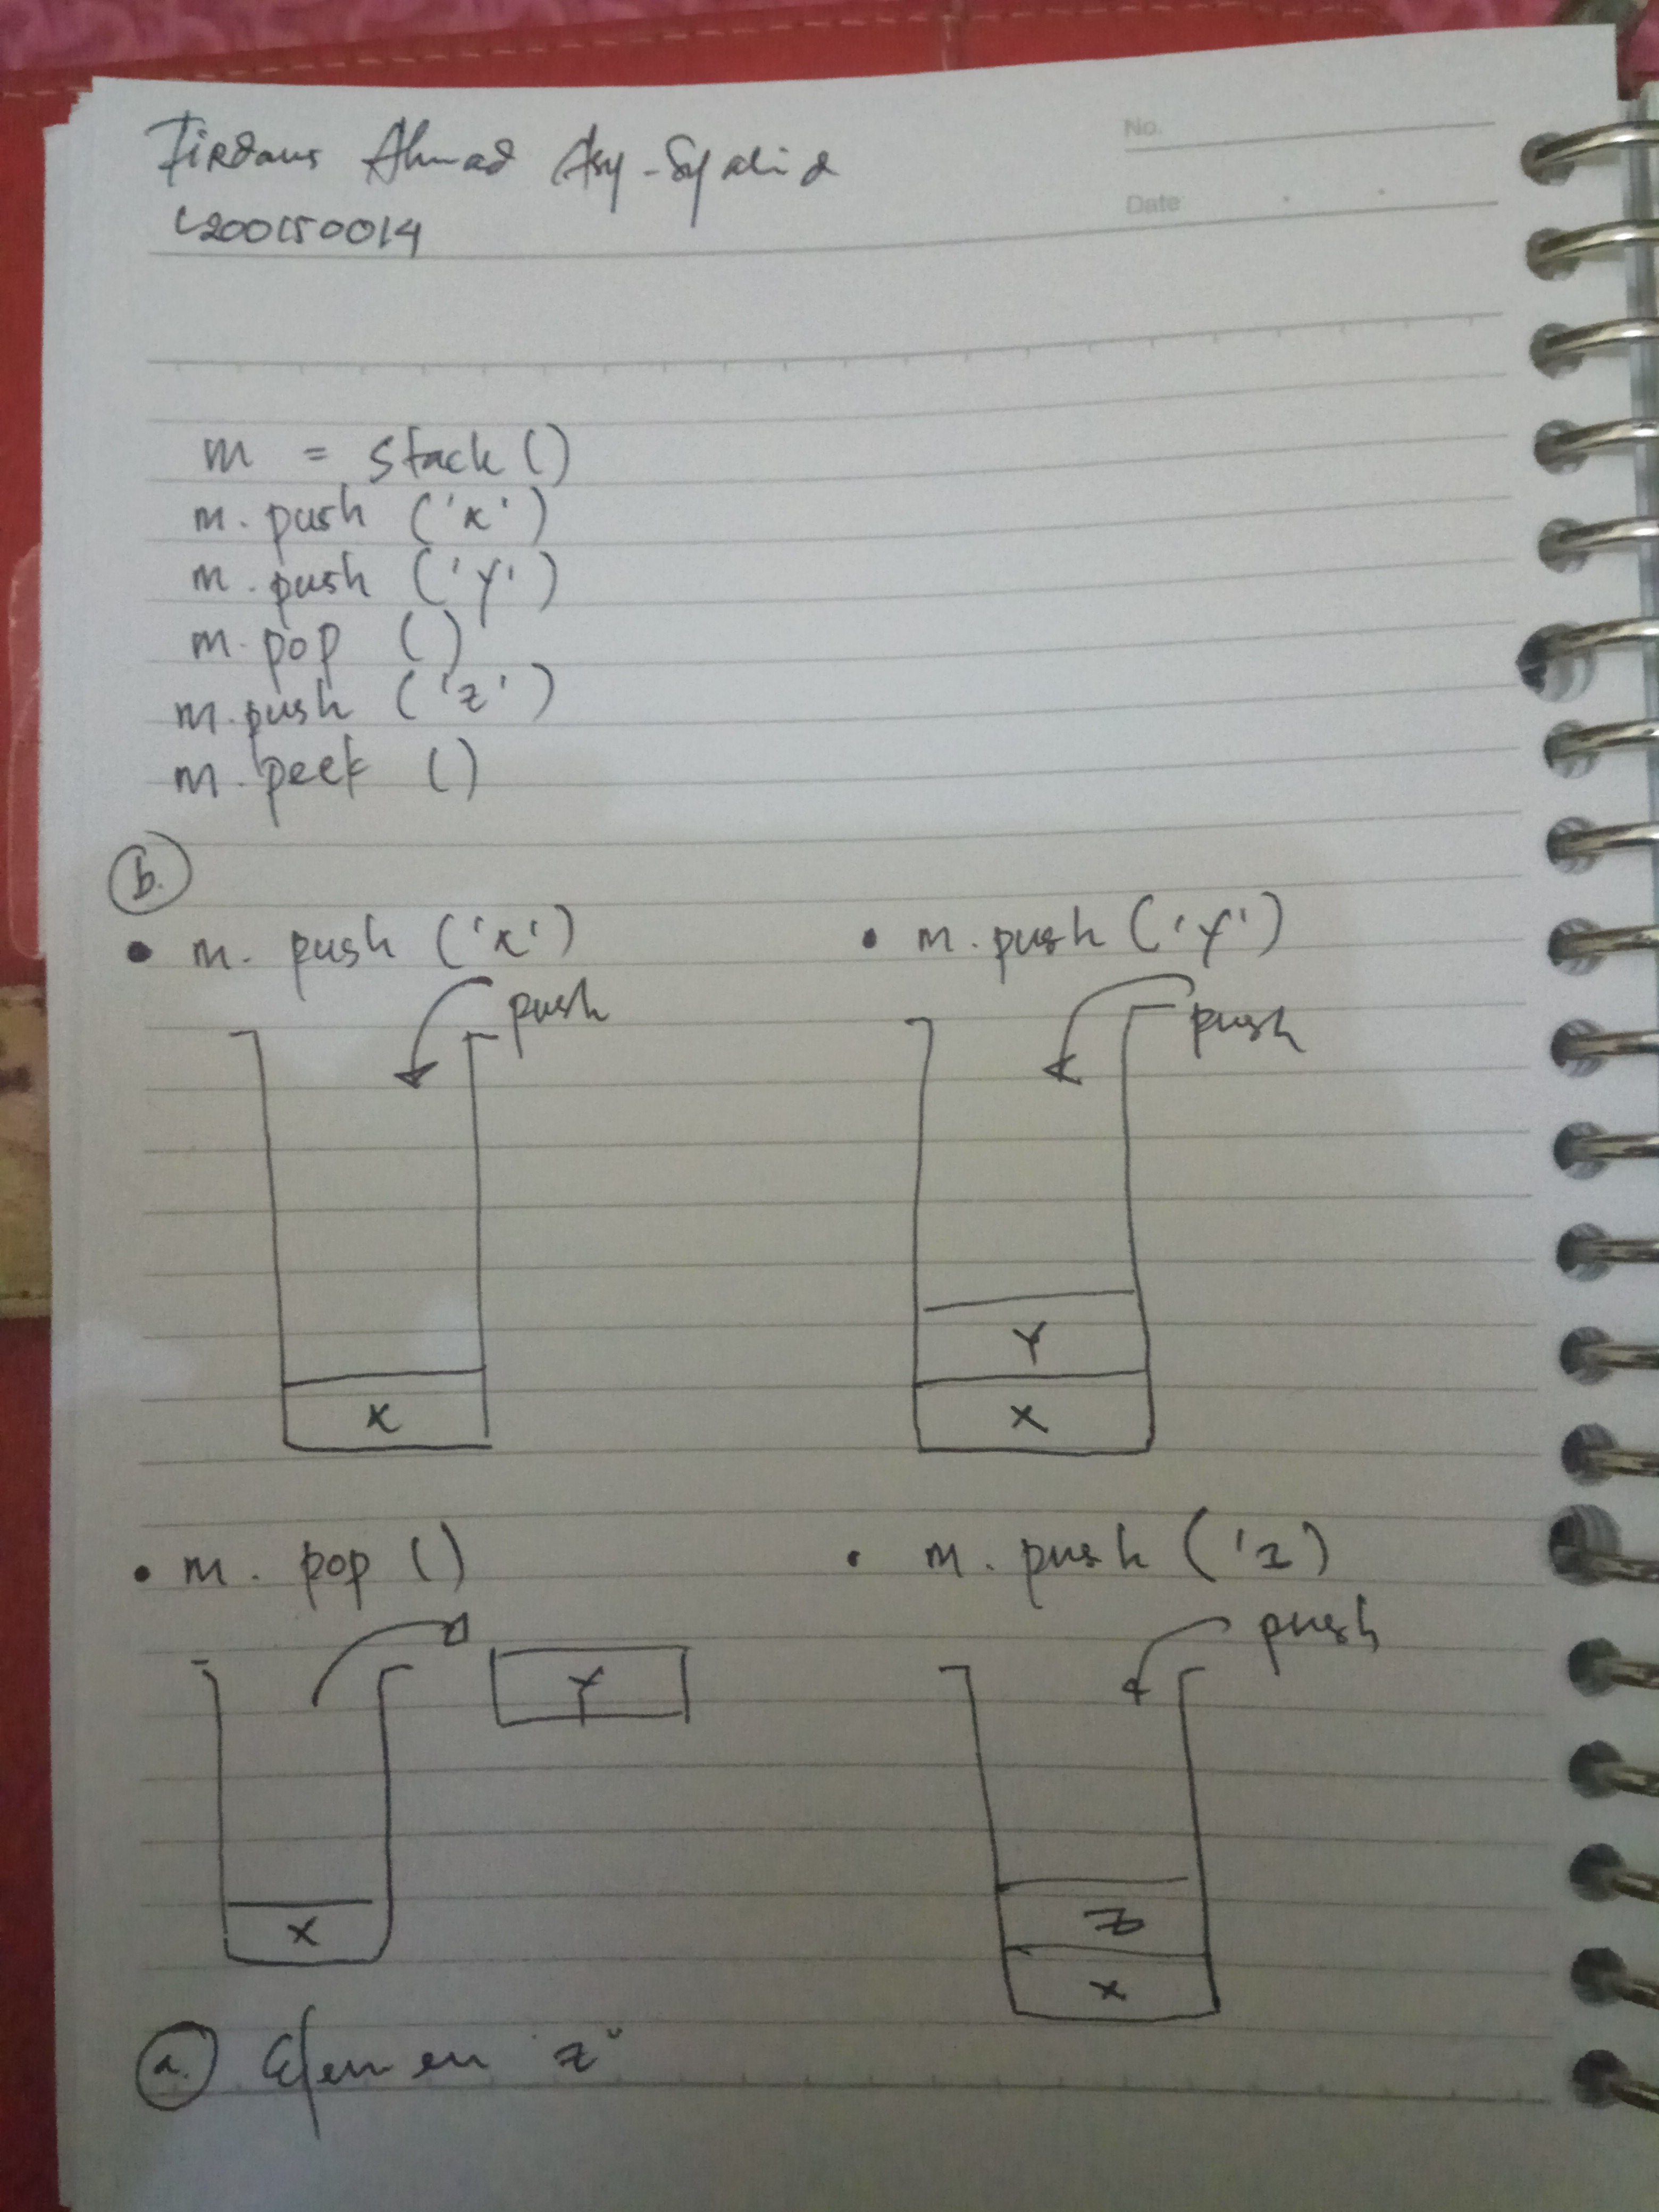 Firdaus Ahmad Asy-Syahid
L200150014
No.
Date
m = stack ()
m. push ('x')
m. push ('y')
m. pop ()
m. push ('z')
m. peek ()
b.
• m. push ('x')
push
x
• m. push ('y')
push
Y
X
• m. pop ()
Y
X
• m. push ('z)
push
Z
X
a. Elemen "z"